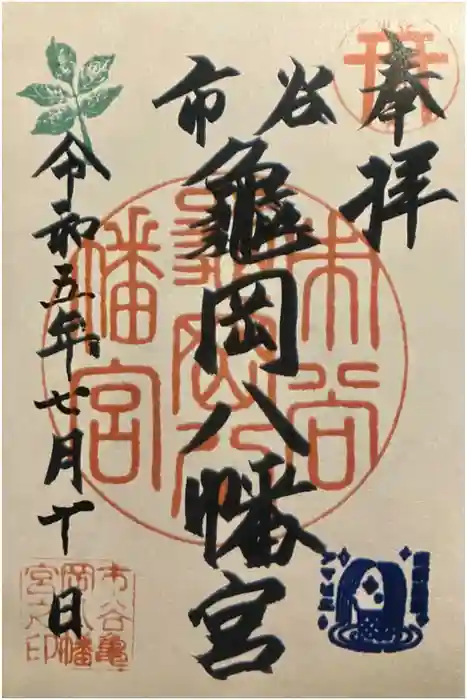 奉拝
市谷
亀岡八幡宮
令和五年七月十日
市谷
亀岡八
幡宮
市谷亀
岡八幡
宮之印